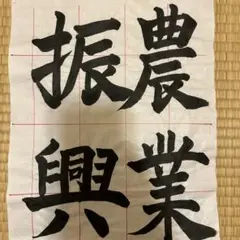 農業
振興